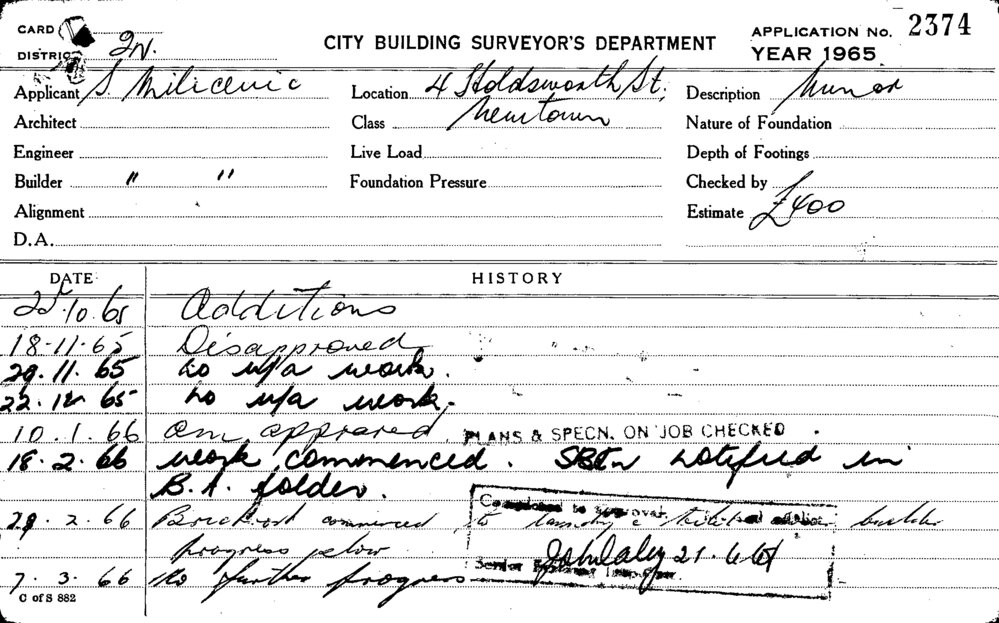 CARD
DISTRICT 2N.
CITY BUILDING SURVEYOR'S DEPARTMENT
APPLICATION No. 2374
YEAR 1965
Applicant S Milicevic
Location 4 Holdsworth St,
Description Minor
Architect
Class Newtown
Nature of Foundation
Engineer
Live Load
Depth of Footings
Builder " "
Foundation Pressure
Checked by
Alignment
Estimate £400
D.A.
DATE HISTORY
10.65 Additions
18-11-65 Disapproved
29.11.65 no u/a work.
22.12.65 no u/a work.
10.1.66 Am. approved PLANS & SPECN. ON JOB CHECKED.
18.2.66 work commenced. notified in
B.A. folder.
2.66 Brickwork commenced to laundry & kitchen builder
progress slow
7.3.66 No further progress
Completed to approval
21.6.66
Senior Building Inspector
C of S 882